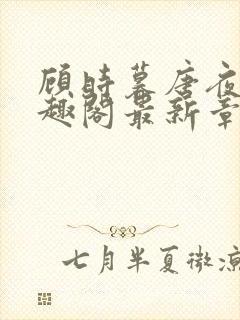 顾时暮唐夜
趣阁最新章
七月半夏微凉